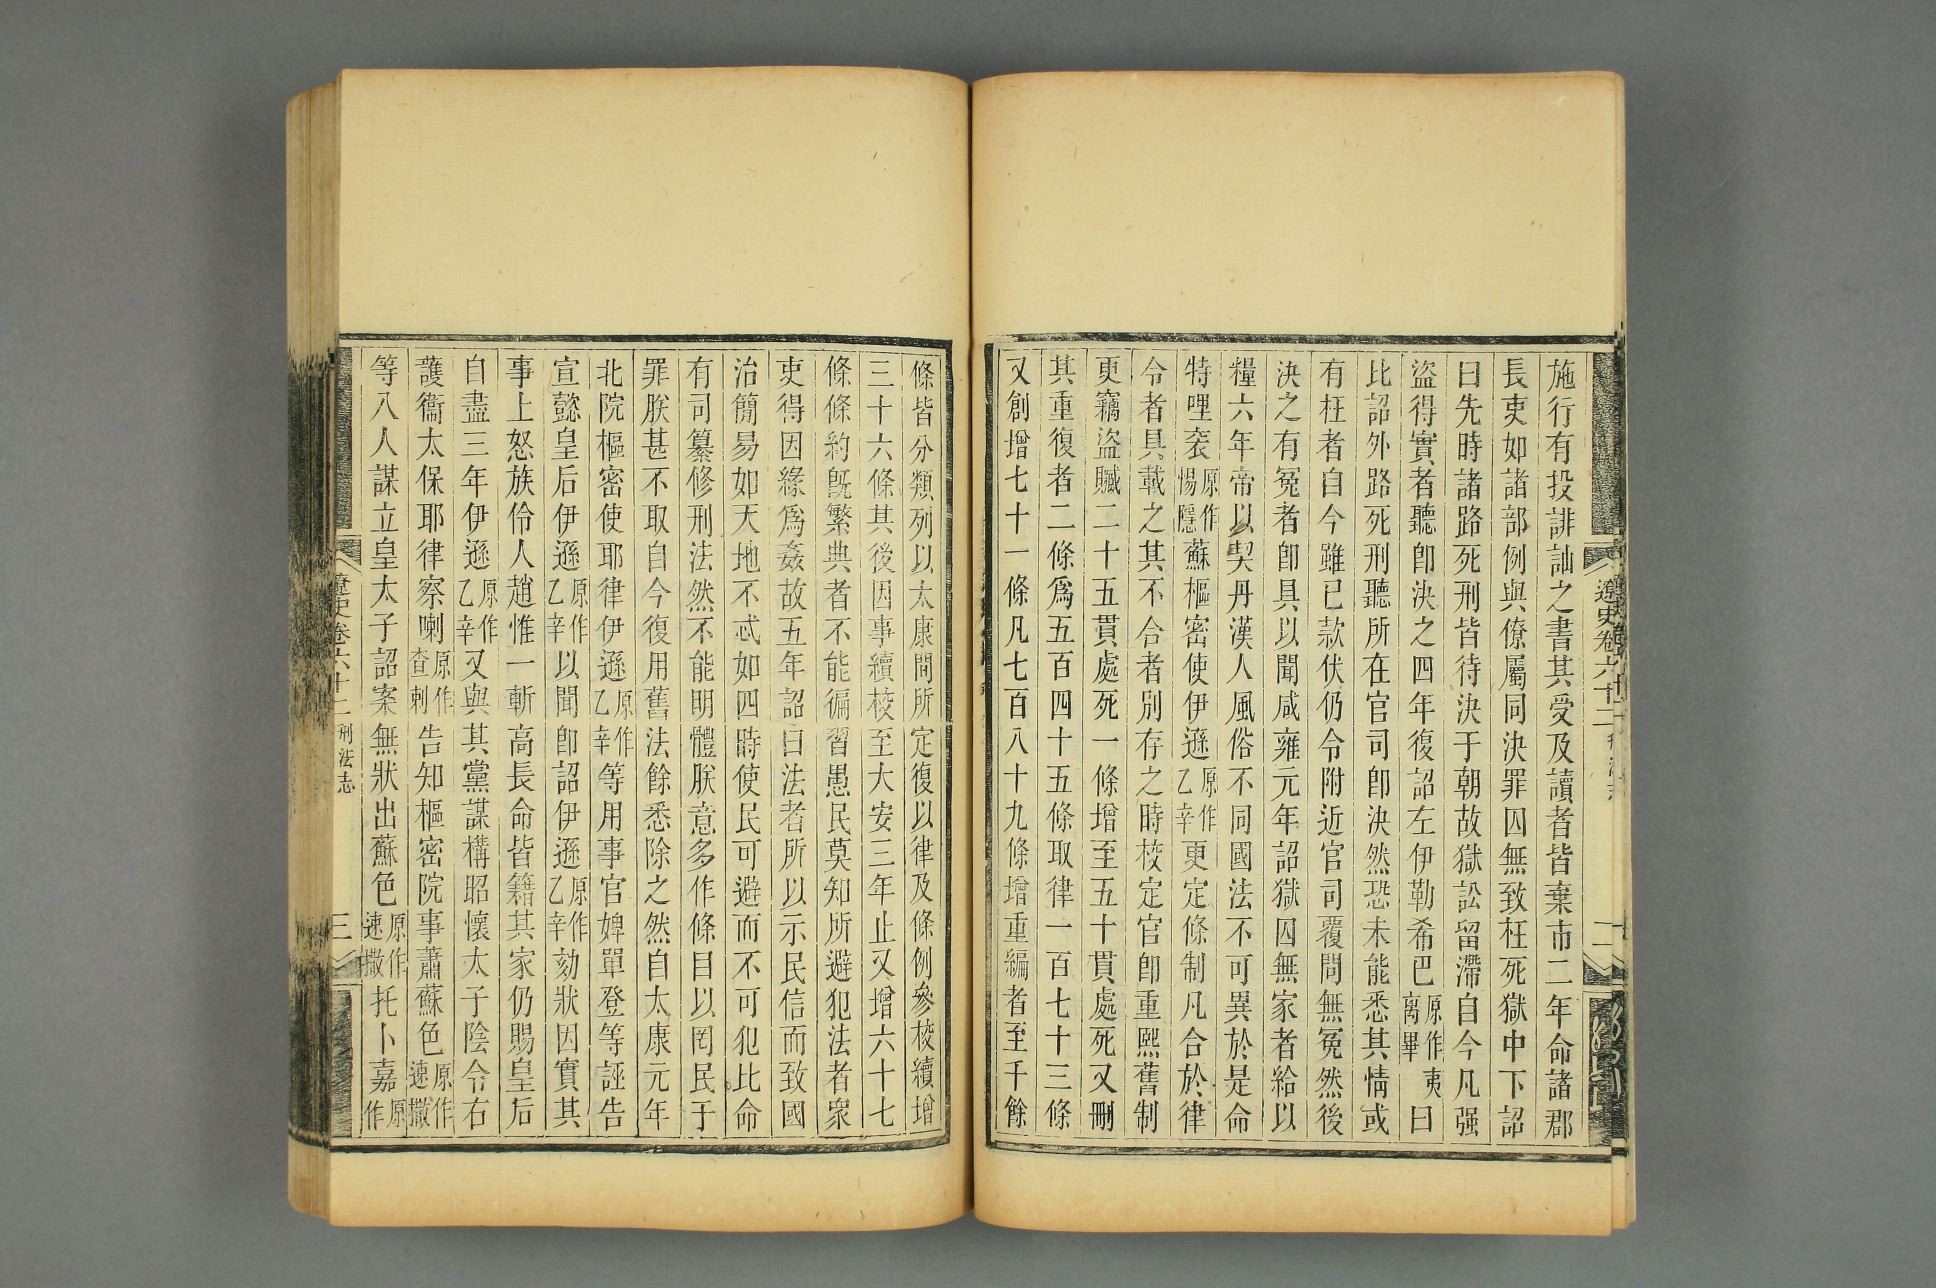 遼史卷六十二
二
施行有投誹訕之書其受及讀者皆棄市二年命諸郡
長吏如諸部例與僚屬同決罪囚無致枉死獄中下詔
曰先時諸路死刑皆待決于朝故獄訟留滯自今凡强
盜得實者聽卽決之四年復詔左伊勒希巴原作夷离畢曰
比詔外路死刑聽所在官司卽決然恐未能悉其情或
有枉者自今雖已款伏仍令附近官司覆問無冤然後
決之有冤者卽具以聞咸雍元年詔獄囚無家者給以
糧六年帝以契丹漢人風俗不同國法不可異於是命
特哩袞原作惕隱蘇樞密使伊遜原作乙辛更定條制凡合於律
令者具載之其不合者別存之時校定官卽重熙舊制
更竊盜贓二十五貫處死一條增至五十貫處死又刪
其重復者二條爲五百四十五條取律一百七十三條
又創增七十一條凡七百八十九條增重編者至千餘
條皆分類列以太康間所定復以律及條例參校續增
三十六條其後因事續校至大安三年止又增六十七
條條約旣繁典者不能徧習愚民莫知所避犯法者衆
吏得因緣爲姦故五年詔曰法者所以示民信而致國
治簡易如天地不忒如四時使民可避而不可犯比命
有司纂修刑法然不能明體朕意多作條目以罔民于
罪朕甚不取自今復用舊法餘悉除之然自太康元年
北院樞密使耶律伊遜原作乙辛等用事官婢單登等誣告
宣懿皇后伊遜原作乙辛以聞卽詔伊遜原作乙辛劾狀因實其
事上怒族伶人趙惟一斬高長命皆籍其家仍賜皇后
自盡三年伊遜原作乙辛又與其黨謀構昭懷太子陰令右
護衞太保耶律察喇原作查剌告知樞密院事蕭蘇色原作速撒
等八人謀立皇太子詔案無狀出蘇色原作速撒托卜嘉原作
遼史卷六十二 刑法志
三